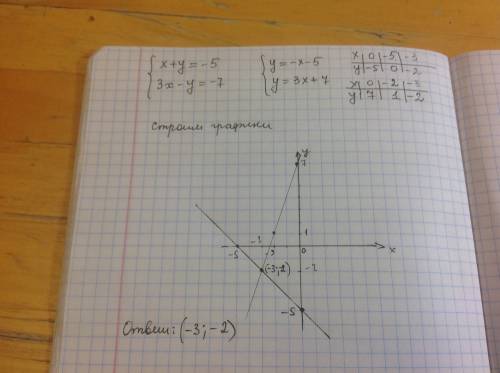 x+y=-5
3x-y=-7
y=-x-5
y=3x+7
x | 0 | -5 | -3
y | -5 | 0 | -2
x | 0 | -2 | -3
y | 7 | 1 | -2
Строим графики
y
7
1
-5
-3
-2
0
x
(-3;-2)
-2
-5
Ответ: (-3; -2)